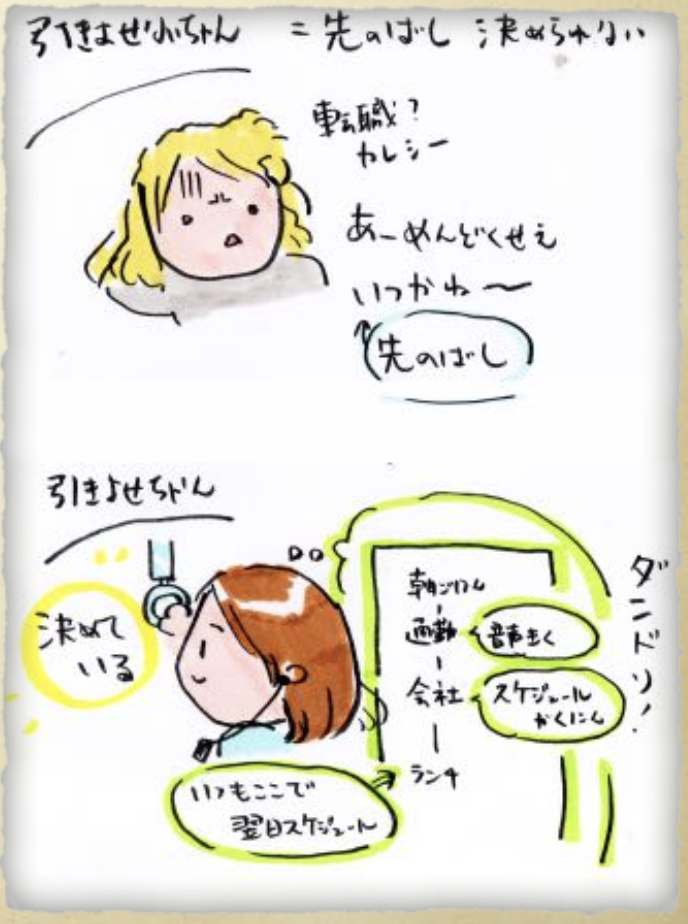 引きよせないちゃん = 先のばし 決められない
転職?
カレシー
あーめんどくせぇ
いつかね〜
先のばし
引きよせちゃん
決めて
いる
ダンドリ!
朝ごはん
通勤
音声きく
会社
スケジュール
かくにん
ランチ
いつもここで
翌日スケジュール